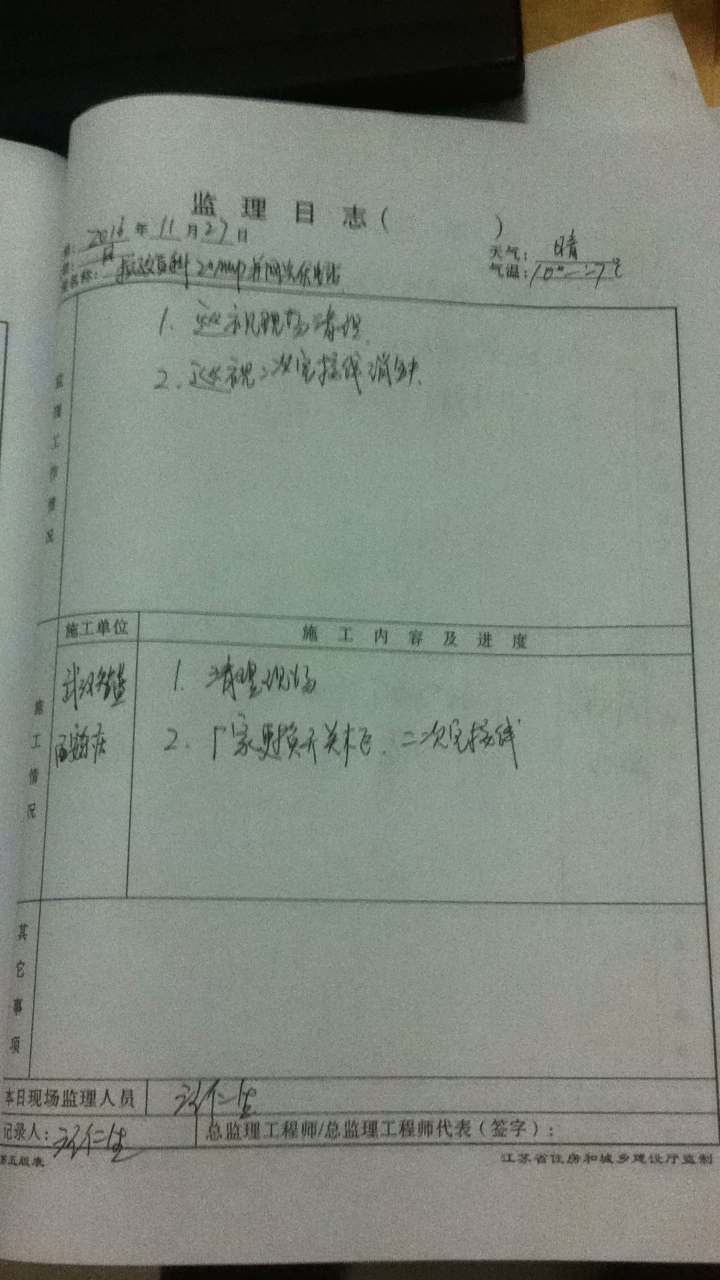 监理日志（ ）
期：2016年11月27日
期：日
天气：晴
程名称：20MWP并网光伏电站
气温：10°—-7℃
监理工作情况
1. 巡视现场清理.
2. 巡视二次室接线消缺.
施工单位 施工内容及进度
施工情况
武汉
1. 清理现场
2. 厂家更换开关柜、二次室接线
其它事项
本日现场监理人员
记录人：
总监理工程师/总监理工程师代表（签字）：
第五版表
江苏省住房和城乡建设厅监制